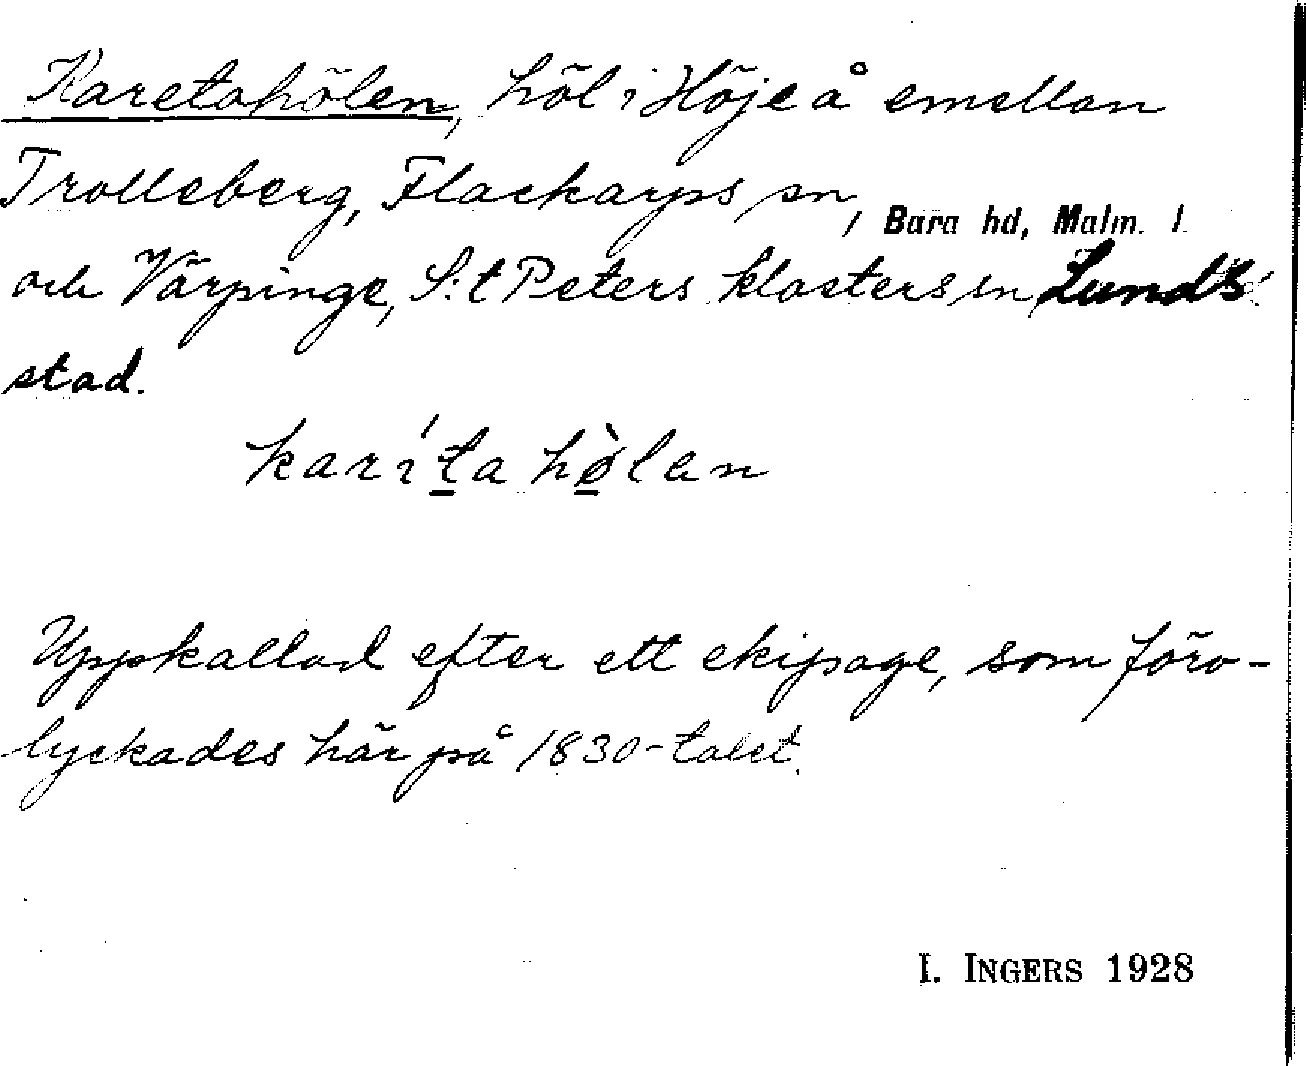 Karetahölen, höl i Höje å emellan
Trolleberg, Flackarps sn, Bara hd, Malm. l.
och Värpinge, S:t Peters klosters sn, Lunds
stad.
karíta hø̀lan
Uppkallad efter ett ekipage, som föro-
lyckades här på 1830-talet.
I. INGERS 1928